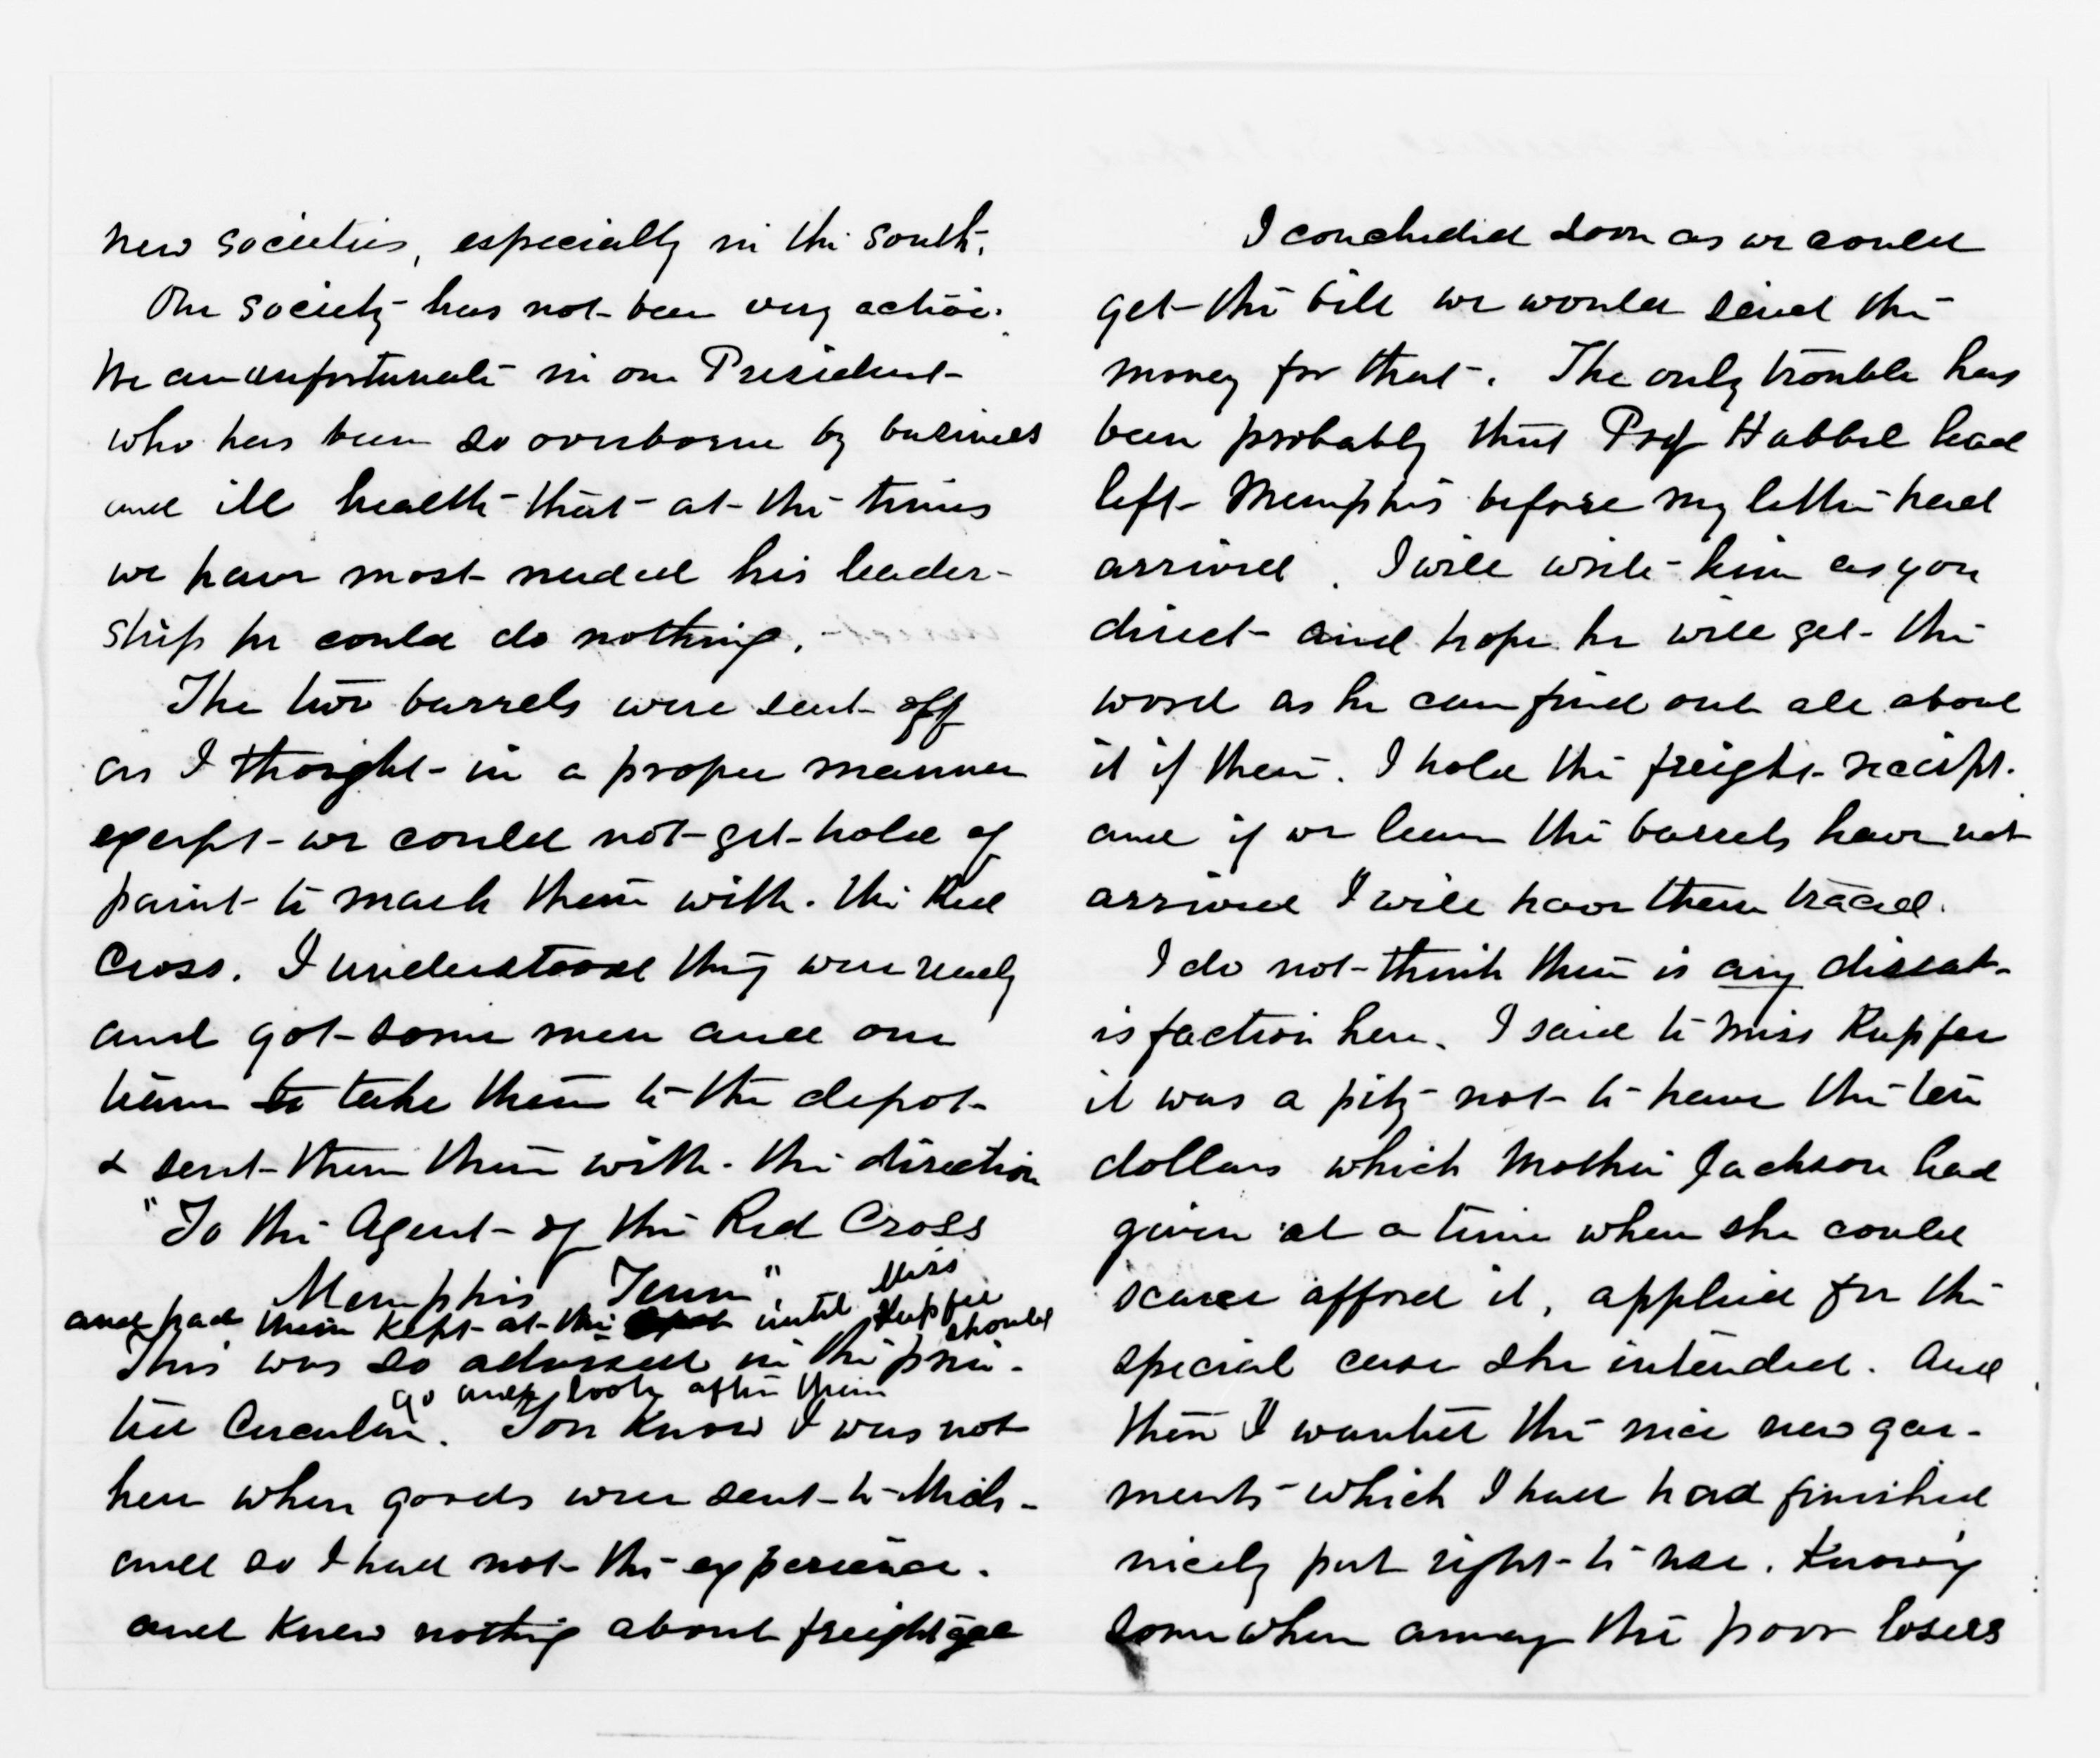 new societies, especially in the south.
Our society has not been very active.
We are unfortunate in our President
who has been so overborne by business
and ill health that at the times
we have most needed his leader-
ship he could do nothing.
The two barrels were sent off
as I thought in a proper manner
except we could not get hold of
paint to mark them with. the Red
Cross. I understood they were ready
and got some men and our
team to take them to the depot
& sent them there with the direction
"To the Agent of the Red Cross
Memphis Tenn"
and had them kept at the until Miss Kupfer should
go and look after them
This was so advised in the prin-
ted Circular. You know I was not
here when goods were sent to Mich-
and so I had not the experience.
and knew nothing about freightage
I concluded soon as we could
get the bill we would send the
money for that. The only trouble has
been probably that Prof Hubbel had
left Memphis before my letter had
arrived. I will write him as you
direct and hope he will get the
word as he can find out all about
it if there. I hold the freight receipt.
and if we learn the barrels have not
arrived I will have them traced.
I do not think there is any dissat-
isfaction here. I said to Miss Kupfer
it was a pity not to have the ten
dollars which Mother Jackson had
given at a time when she could
scarce afford it, applied for the
special case she intended. And
then I wanted the nice new gar-
ments which I had had finished
nicely put right to use. Knowing
somewhere among the poor losers